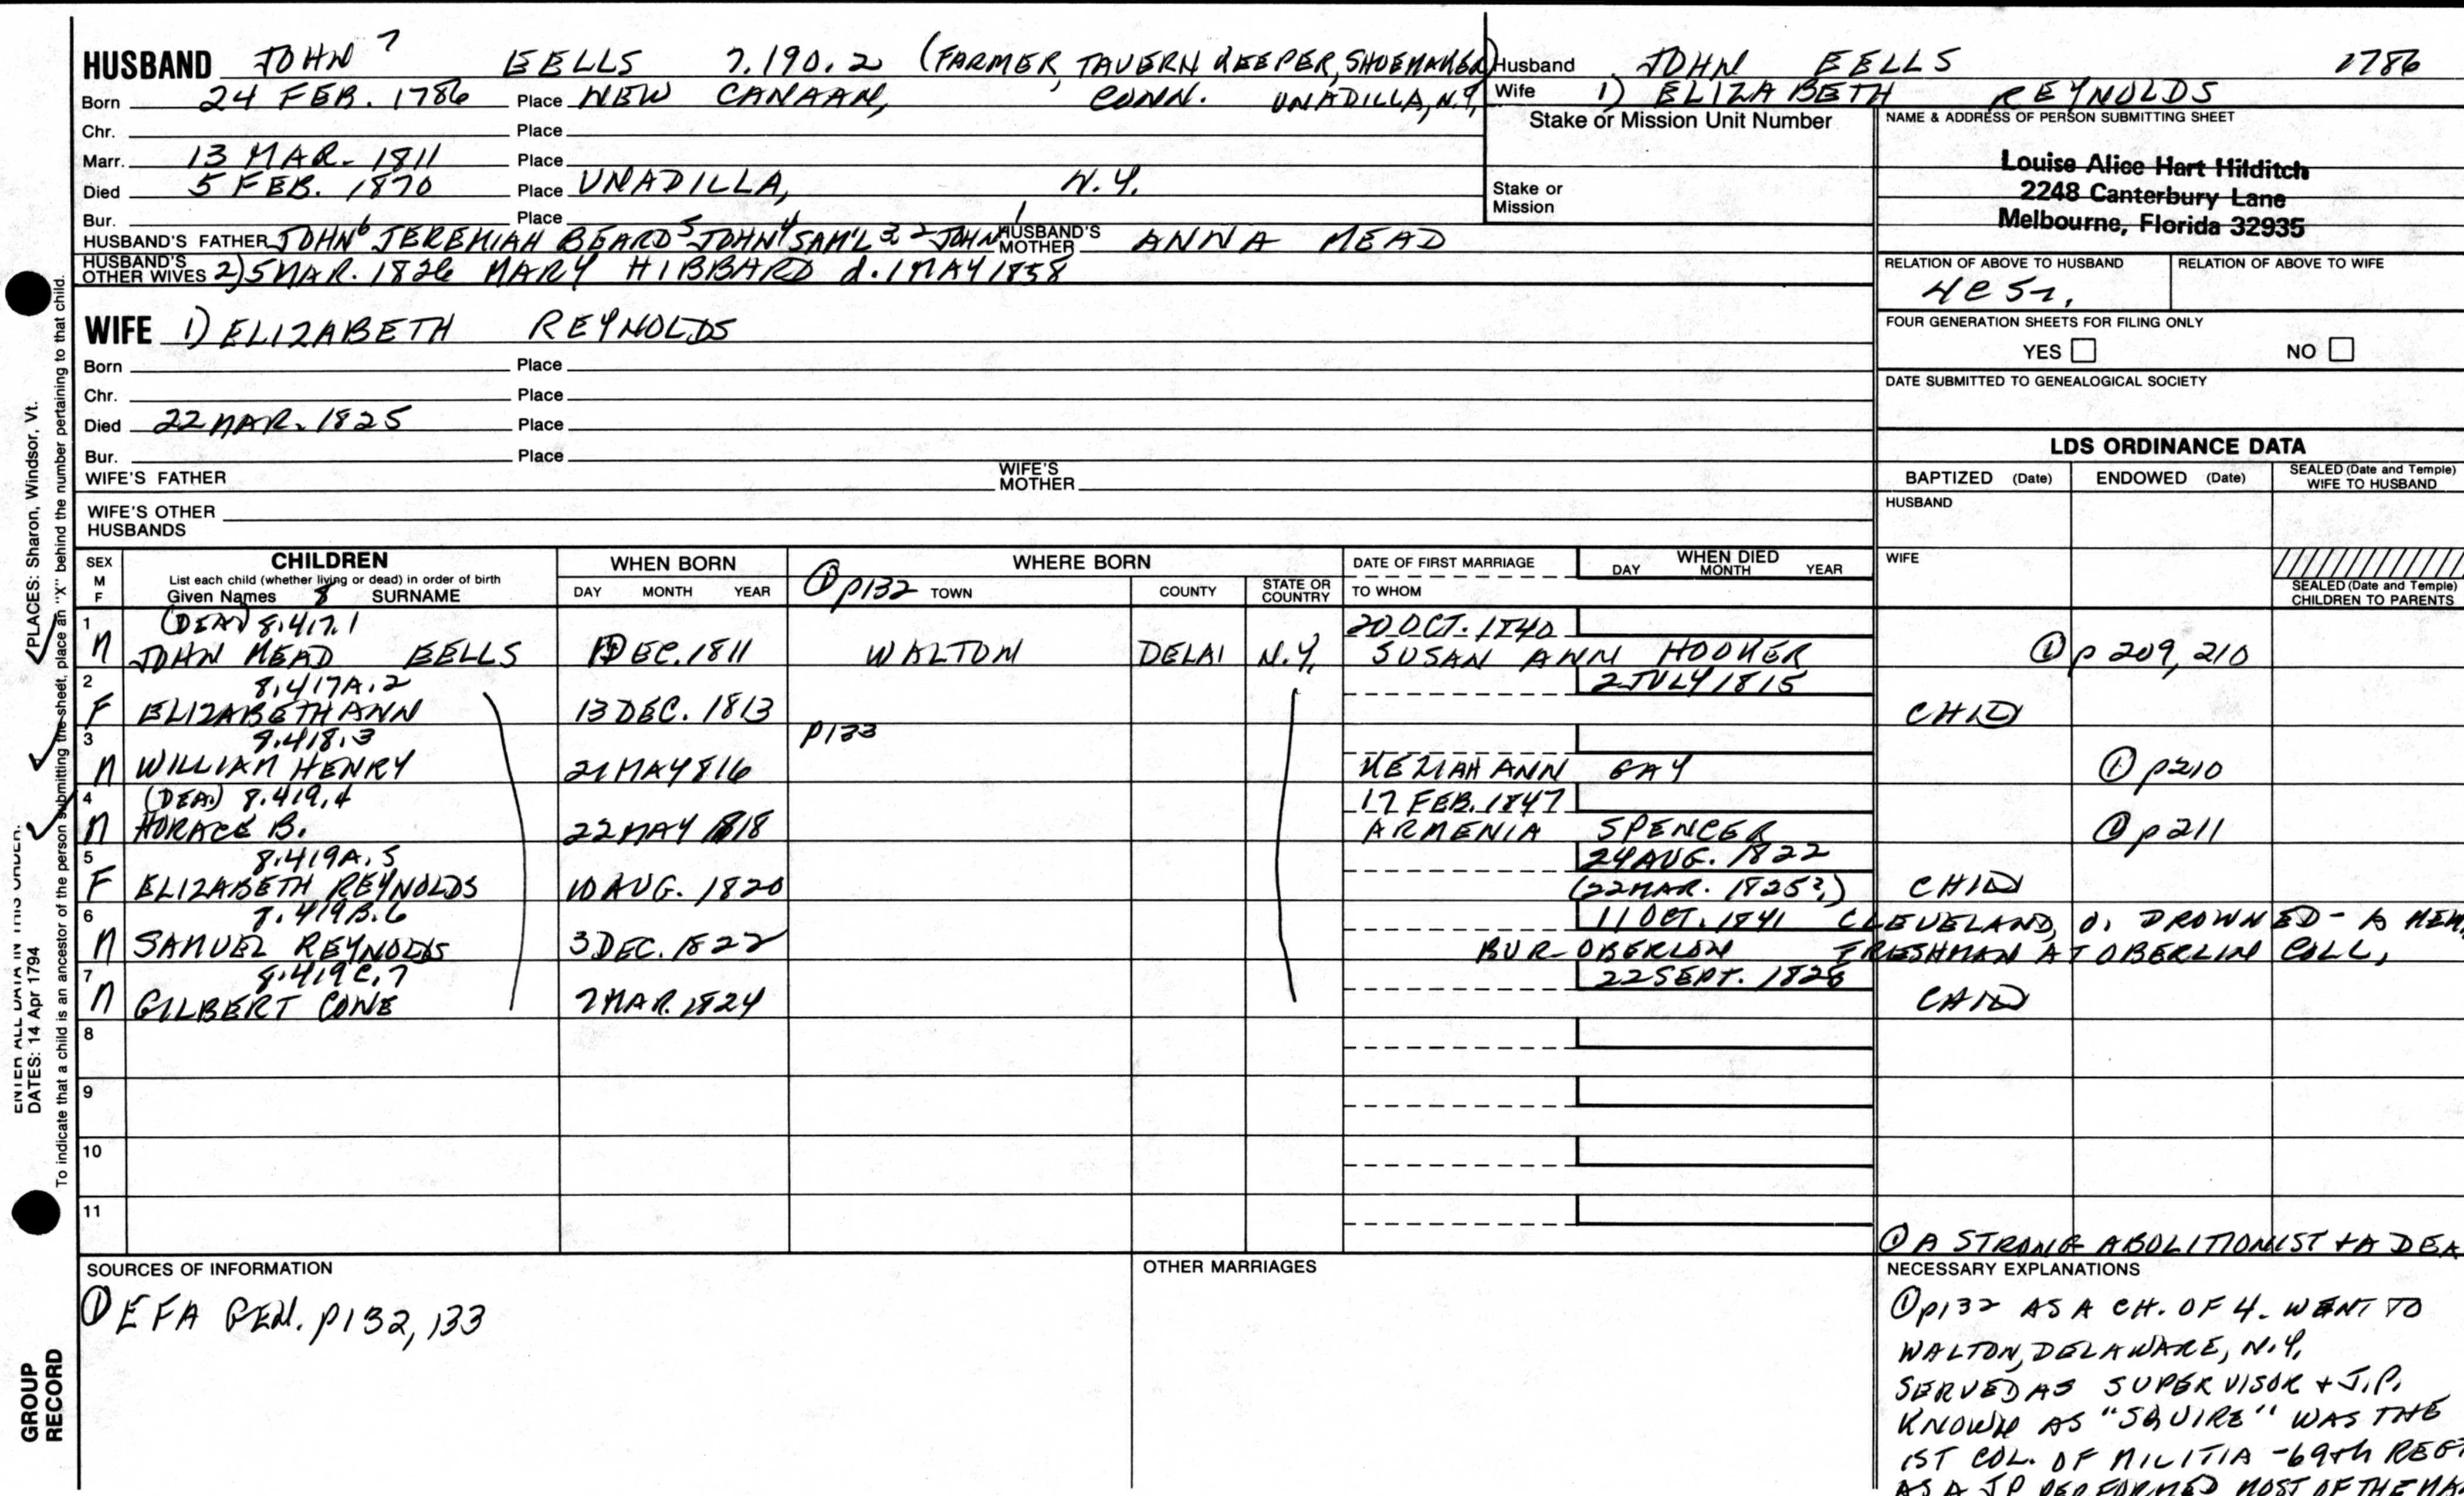 HUSBAND JOHN 7 EELLS 7.190.2 (FARMER, TAVERN KEEPER, SHOEMAKER)
Born 24 FEB. 1786 Place NEW CANAAN, CONN. UNADILLA, N.Y.
Chr. Place
Marr. 13 MAR. 1811 Place
Died 5 FEB. 1870 Place UNADILLA, N.Y.
Bur. Place
HUSBAND'S FATHER JOHN 6 JEREMIAH BEARD 5 JOHN 4 SAM'L 3 2 JOHN 1 HUSBAND'S MOTHER ANNA MEAD
HUSBAND'S OTHER WIVES 2) 5 MAR. 1826 MARY HIBBARD d. 1 MAY 1858
Husband JOHN EELLS 1786
Wife 1) ELIZABETH REYNOLDS
Stake or Mission Unit Number
Stake or Mission
NAME & ADDRESS OF PERSON SUBMITTING SHEET
Louise Alice Hart Hilditch
2248 Canterbury Lane
Melbourne, Florida 32935
RELATION OF ABOVE TO HUSBAND RELATION OF ABOVE TO WIFE
FOUR GENERATION SHEETS FOR FILING ONLY
YES NO
DATE SUBMITTED TO GENEALOGICAL SOCIETY
WIFE 1) ELIZABETH REYNOLDS
Born Place
Chr. Place
Died 22 MAR. 1825 Place
Bur. Place
WIFE'S FATHER WIFE'S MOTHER
WIFE'S OTHER HUSBANDS
LDS ORDINANCE DATA
BAPTIZED (Date) ENDOWED (Date) SEALED (Date and Temple) WIFE TO HUSBAND
HUSBAND
WIFE
SEALED (Date and Temple) CHILDREN TO PARENTS
SEX M F CHILDREN WHEN BORN WHERE BORN DATE OF FIRST MARRIAGE WHEN DIED
List each child (whether living or dead) in order of birth DAY MONTH YEAR
Given Names 8 SURNAME DAY MONTH YEAR ① p132 TOWN COUNTY STATE OR COUNTRY TO WHOM
1 (DEA) 8.417.1 20 OCT. 1840
M JOHN MEAD EELLS DEC. 1811 WALTON DELA N.Y. SUSAN ANN HOOKER ① p 209, 210
2 8.417A.2 2 JULY 1815
F ELIZABETH ANN 13 DEC. 1813 CHILD
3 8.418.3 p133
M WILLIAM HENRY 21 MAY 1816 KEZIAH ANN GAY ① p210
4 (DEA) 8.419.4 17 FEB. 1847
M HORACE B. 22 MAY 1818 ARMENIA SPENCER ① p211
5 8.419A.5 24 AUG. 1822
F ELIZABETH REYNOLDS 10 AUG. 1820 (22 MAR. 1825?) CHILD
6 8.419B.6 11 OCT. 1841 CLEVELAND, O. DROWNED - A
M SAMUEL REYNOLDS 3 DEC. 1822 BUR- OBERLIN FRESHMAN AT OBERLIN COLL,
7 8.419C.7 22 SEPT. 1826
M GILBERT CONE 7 MAR. 1824 CHILD
8
9
10
11
① A STRONG ABOLITIONIST + A DEA
SOURCES OF INFORMATION
① EFA GEN. p132, 133
OTHER MARRIAGES
NECESSARY EXPLANATIONS
① p132 AS A CH. OF 4. WENT TO
WALTON, DELAWARE, N.Y.
SERVED AS SUPERVISOR + J.P.
KNOWN AS "SQUIRE" WAS THE
1ST COL. OF MILITIA - 69th REGT
AS A JP PERFORMED MOST OF THE MA
ENTER ALL DATA IN THIS ORDER:
DATES: 14 Apr 1794 PLACES: Sharon, Windsor, Vt.
To indicate that a child is an ancestor of the person submitting the sheet, place an "X" behind the number pertaining to that child.
GROUP RECORD